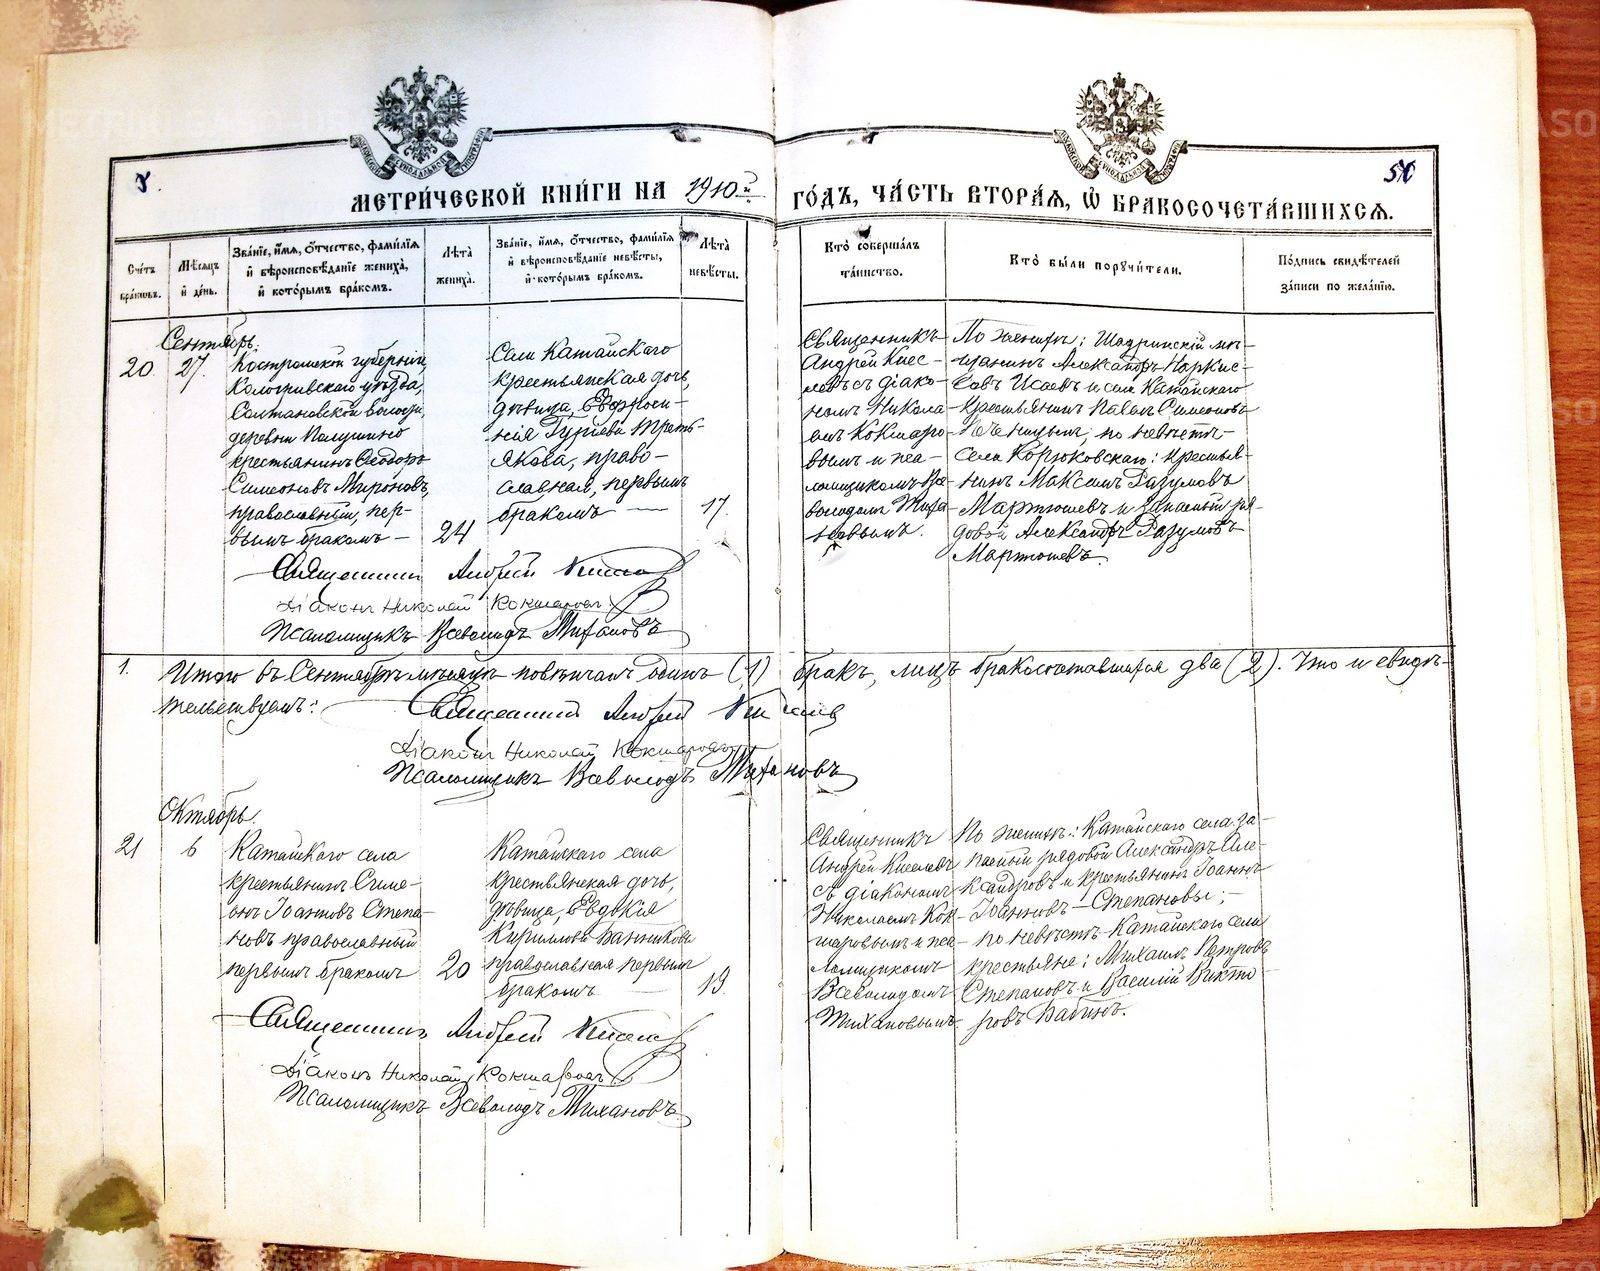 МЕТРИ́ЧЕСКОЙ КНИ́ГИ НА 1910й ГО́ДЪ, ЧА́СТЬ ВТОРА́Я, Ѡ БРАКОСОЧЕТА́ВШИХСЯ.
Сче́тъ бра́ковъ.
Мѣ́сяцъ и де́нь.
Зва́нїе, и́мя, о́тчество, фами́лїя
и вѣроисповѣ́данїе жениха̀,
и кото́рымъ бра́комъ.
Лѣ́та жениха̀.
Зва́нїе, и́мя, о́тчество, фами́лїя
и вѣроисповѣ́данїе невѣ́сты,
и кото́рымъ бра́комъ.
Лѣ́та невѣ́сты.
Кто̀ соверша́лъ
та́инство.
Кто̀ бы́ли поручи́тели.
По́дпись свидѣ́телей
за́писи по жела́нїю.
Сентябрь.
20
27.
Костромской губерніи,
Кологривскаго уѣзда,
Солтановской волости,
деревни Полушино
крестьянинъ Ѳеодоръ
Симеоновъ Мироновъ,
православный, пер-
вымъ бракомъ —
24
Села Катайскаго
крестьянская дочь,
дѣвица, Евфроси-
нія Гуріева Треть-
якова, право-
славная, первымъ
бракомъ —
17.
Священникъ
Андрей Кисе-
левъ съ діако-
номъ Никола-
емъ Кокшаро-
вымъ и пса-
ломщикомъ Все-
володомъ Тиха-
новымъ.
По женихѣ: Шадринскій мѣ-
щанинъ Александръ Наркис-
совъ Исаевъ и села Катайскаго
крестьянинъ Павелъ Симеоновъ
по невѣстѣ-
села Корюковскаго: крестья-
нинъ Максимъ Разумовъ
Мартюшевъ и запасный ря-
довой Александръ Разумовъ
Мартюшевъ.
Священникъ Андрей Киселевъ
Діаконъ Николай Кокшаровъ
Псаломщикъ Всеволодъ Тихановъ
1.
Итого въ Сентябрѣ мѣсяцѣ повѣнчанъ одинъ (1) бракъ, лицъ бракосочетавшихся два (2). Что и свидѣ-
тельствуемъ:
Священникъ Андрей Киселевъ
Діаконъ Николай Кокшаровъ
Псаломщикъ Всеволодъ Тихановъ
Октябрь.
21
6
Катайскаго села
крестьянинъ Симе-
онъ Іоанновъ Степа-
новъ православный
первымъ бракомъ
20
Катайскаго села
крестьянская дочь,
дѣвица, Евдокія
Кириллова Банникова
православная первымъ
бракомъ —
19.
Священникъ
Андрей Киселевъ
съ діакономъ
Николаемъ Кок-
шаровымъ и пса-
ломщикомъ
Всеволодомъ
Тихановымъ.
По женихѣ: Катайскаго села за-
пасный рядовой Александръ Але-
ксандровъ и крестьянинъ Іоаннъ
Іоанновъ — Степановы; —
по невѣстѣ — Катайскаго села
крестьяне: Михаилъ Петровъ
Степановъ и Василій Викто-
ровъ Бабинъ.
Священникъ Андрей Киселевъ
Діаконъ Николай Кокшаровъ
Псаломщикъ Всеволодъ Тихановъ